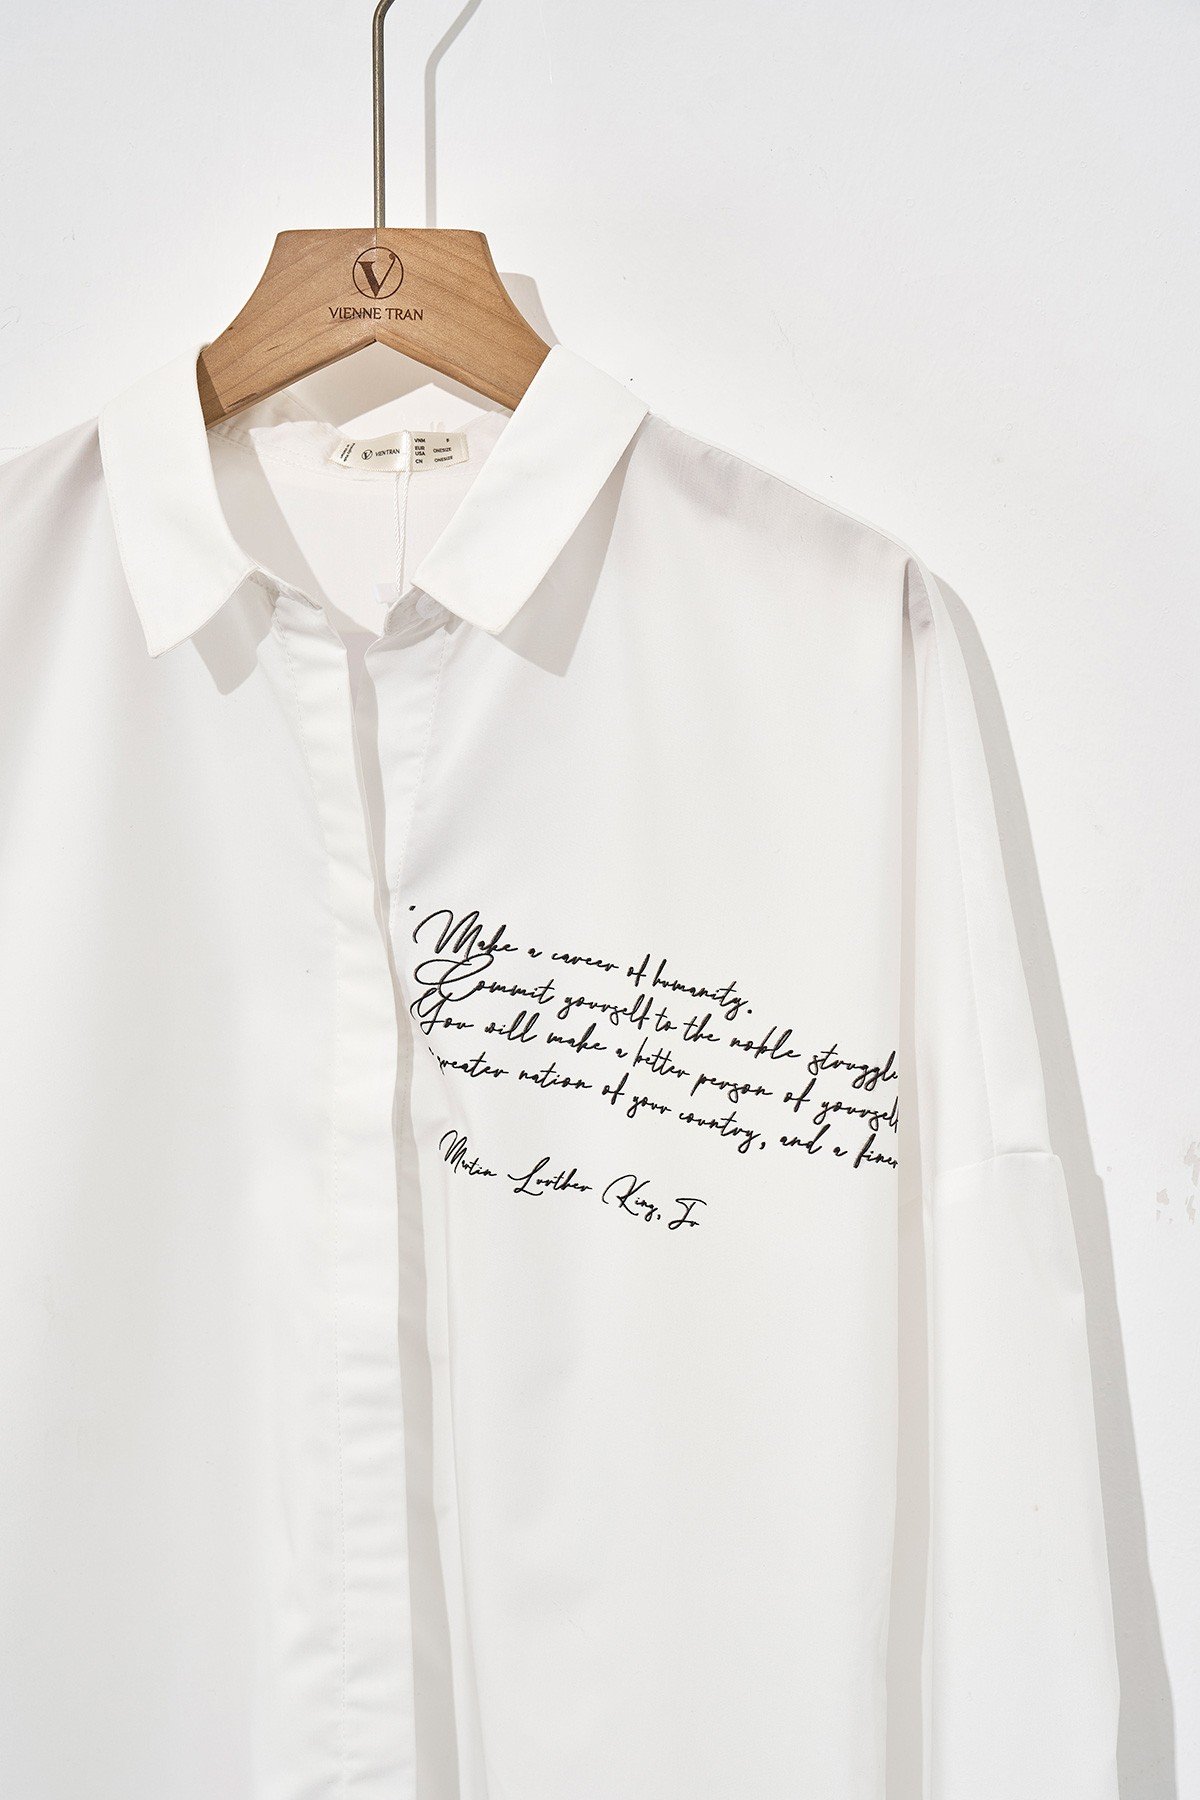 V
VIENNE TRAN
V VIENTRAN
VNM F
EUR
USA ONESIZE
CN ONESIZE
"Make a career of humanity.
Commit yourself to the noble struggle
You will make a better person of yourself
greater nation of your country, and a finer
Martin Lurther King, Jr